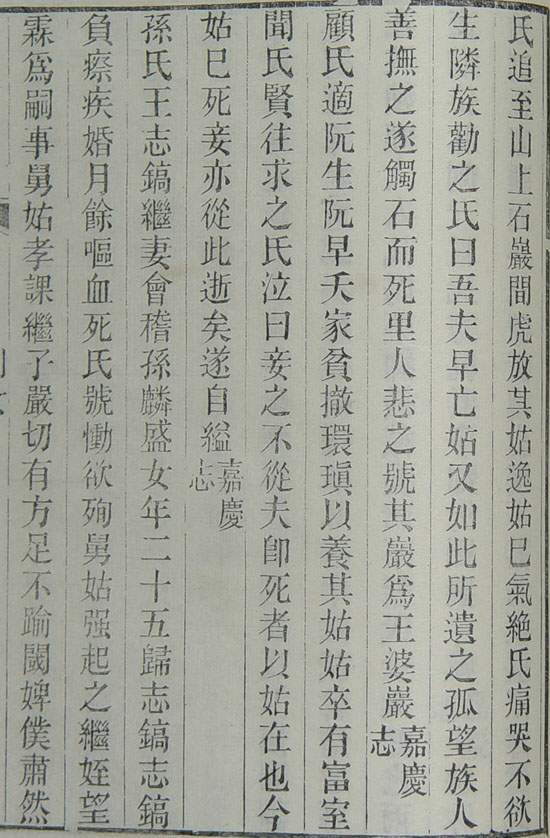 氏追至山上石巖間虎放其姑逸姑巳氣絶氏痛哭不欲
生隣族勸之氏曰吾夫早亡姑又如此所遺之孤望族人
善撫之遂觸石而死里人悲之號其巖爲王婆巖嘉慶志
顧氏適阮生阮早夭家貧撤環瑱以養其姑姑卒有富室
聞氏賢往求之氏泣曰妾之不從夫卽死者以姑在也今
姑巳死妾亦從此逝矣遂自縊嘉慶志
孫氏王志鎬繼妻會稽孫麟盛女年二十五歸志鎬志鎬
負瘵疾婚月餘嘔血死氏號慟欲殉舅姑强起之繼姪望
霖爲嗣事舅姑孝課繼子嚴切有方足不踰閾婢僕肅然